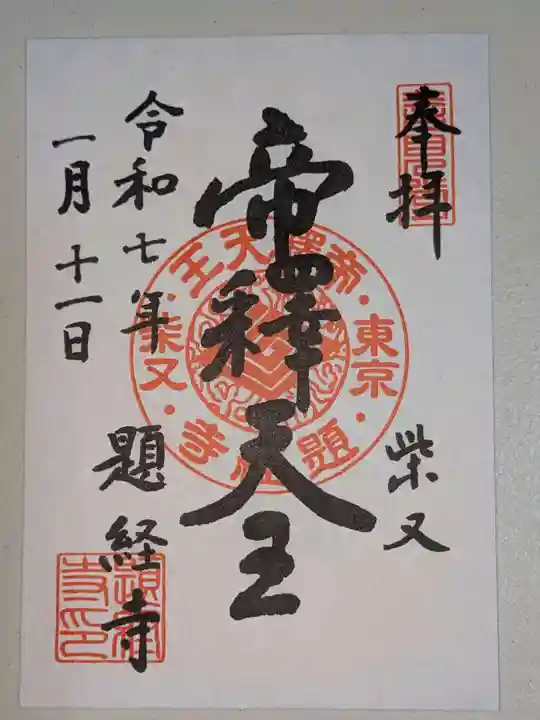 奉拝
柴又
帝釋天王
令和七年
一月十一日
題経寺
帝釋天王
東京
柴又
題経寺